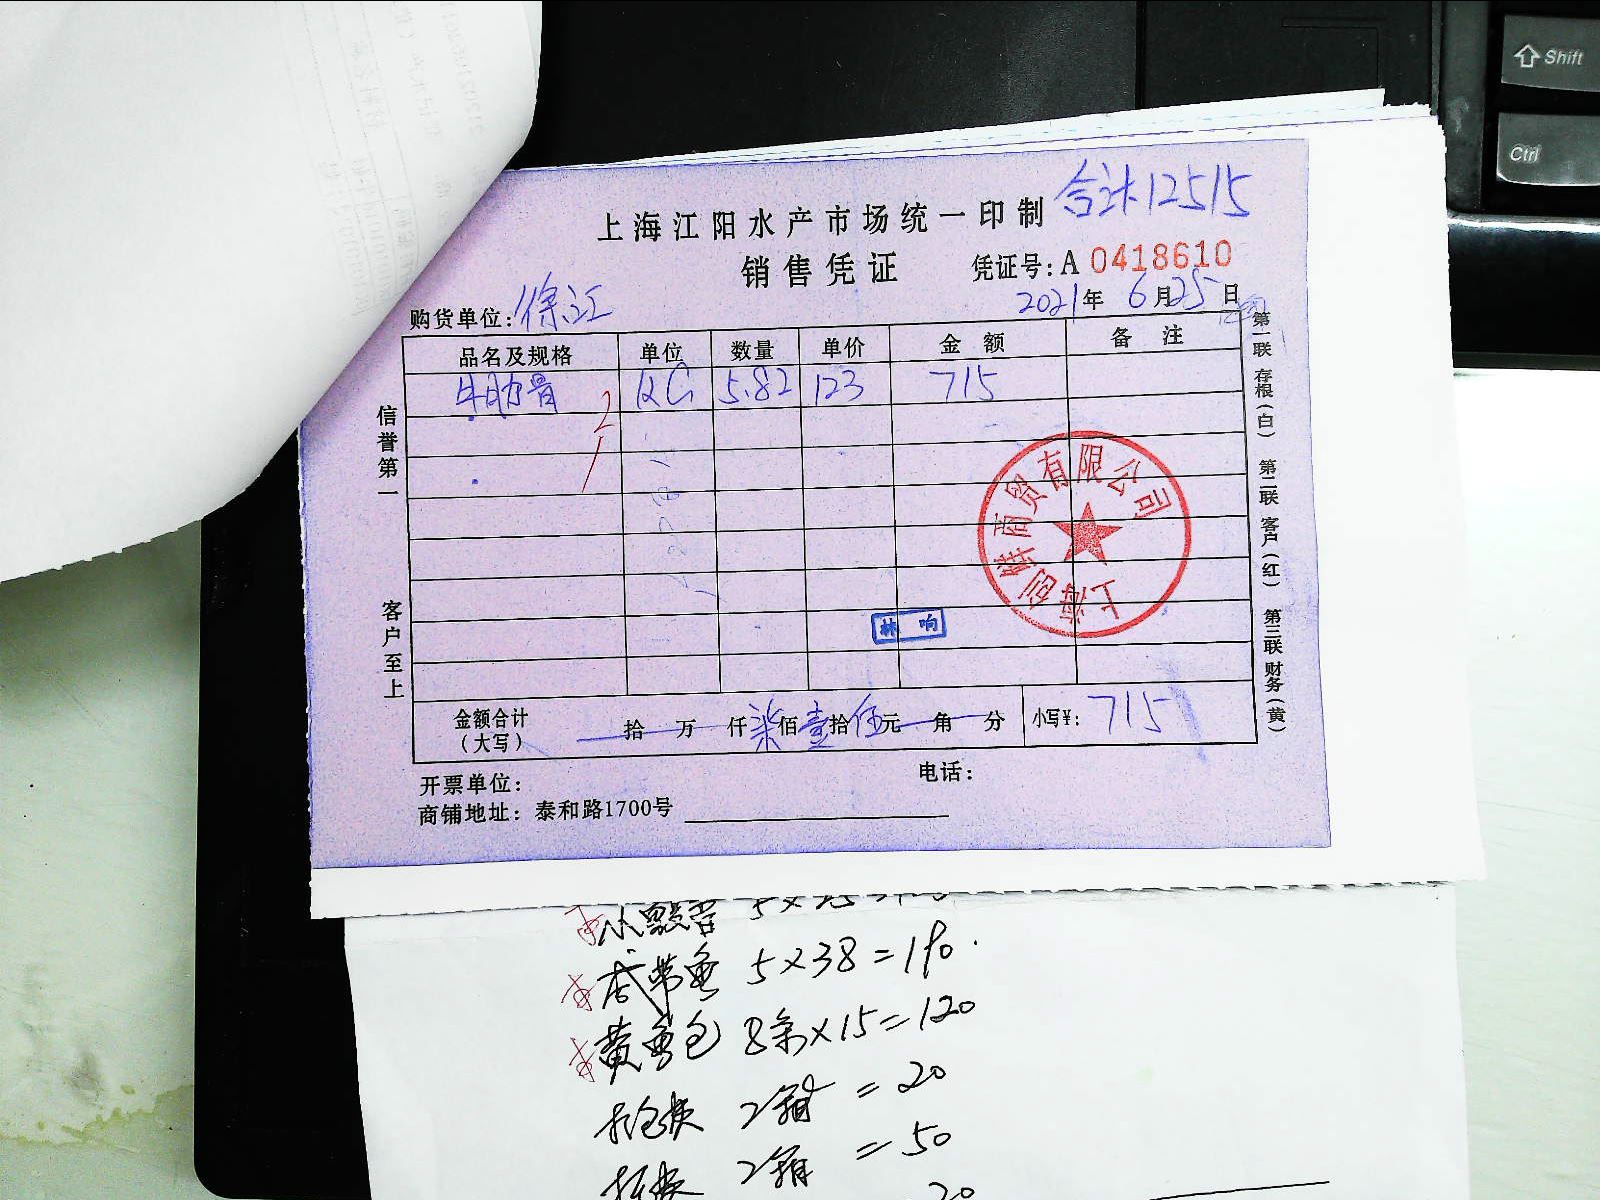 合计12515
上海江阳水产市场统一印制
销售凭证
凭证号:A 0418610
购货单位:徐汇
2021年6月25日
品名及规格 单位 数量 单价 金额 备注
牛肋骨 KG 5.82 123 715
信誉第一
客户至上
第一联 存根(白) 第二联 客户(红) 第三联 财务(黄)
上海创骅商贸有限公司
林响
金额合计(大写) 拾 万 仟柒佰壹拾伍元 角 分 小写¥: 715
开票单位: 电话:
商铺地址: 泰和路1700号
5×38=190
黄鱼 8条×15=120
2箱 =20
2箱 =50
20
Shift
Ctrl